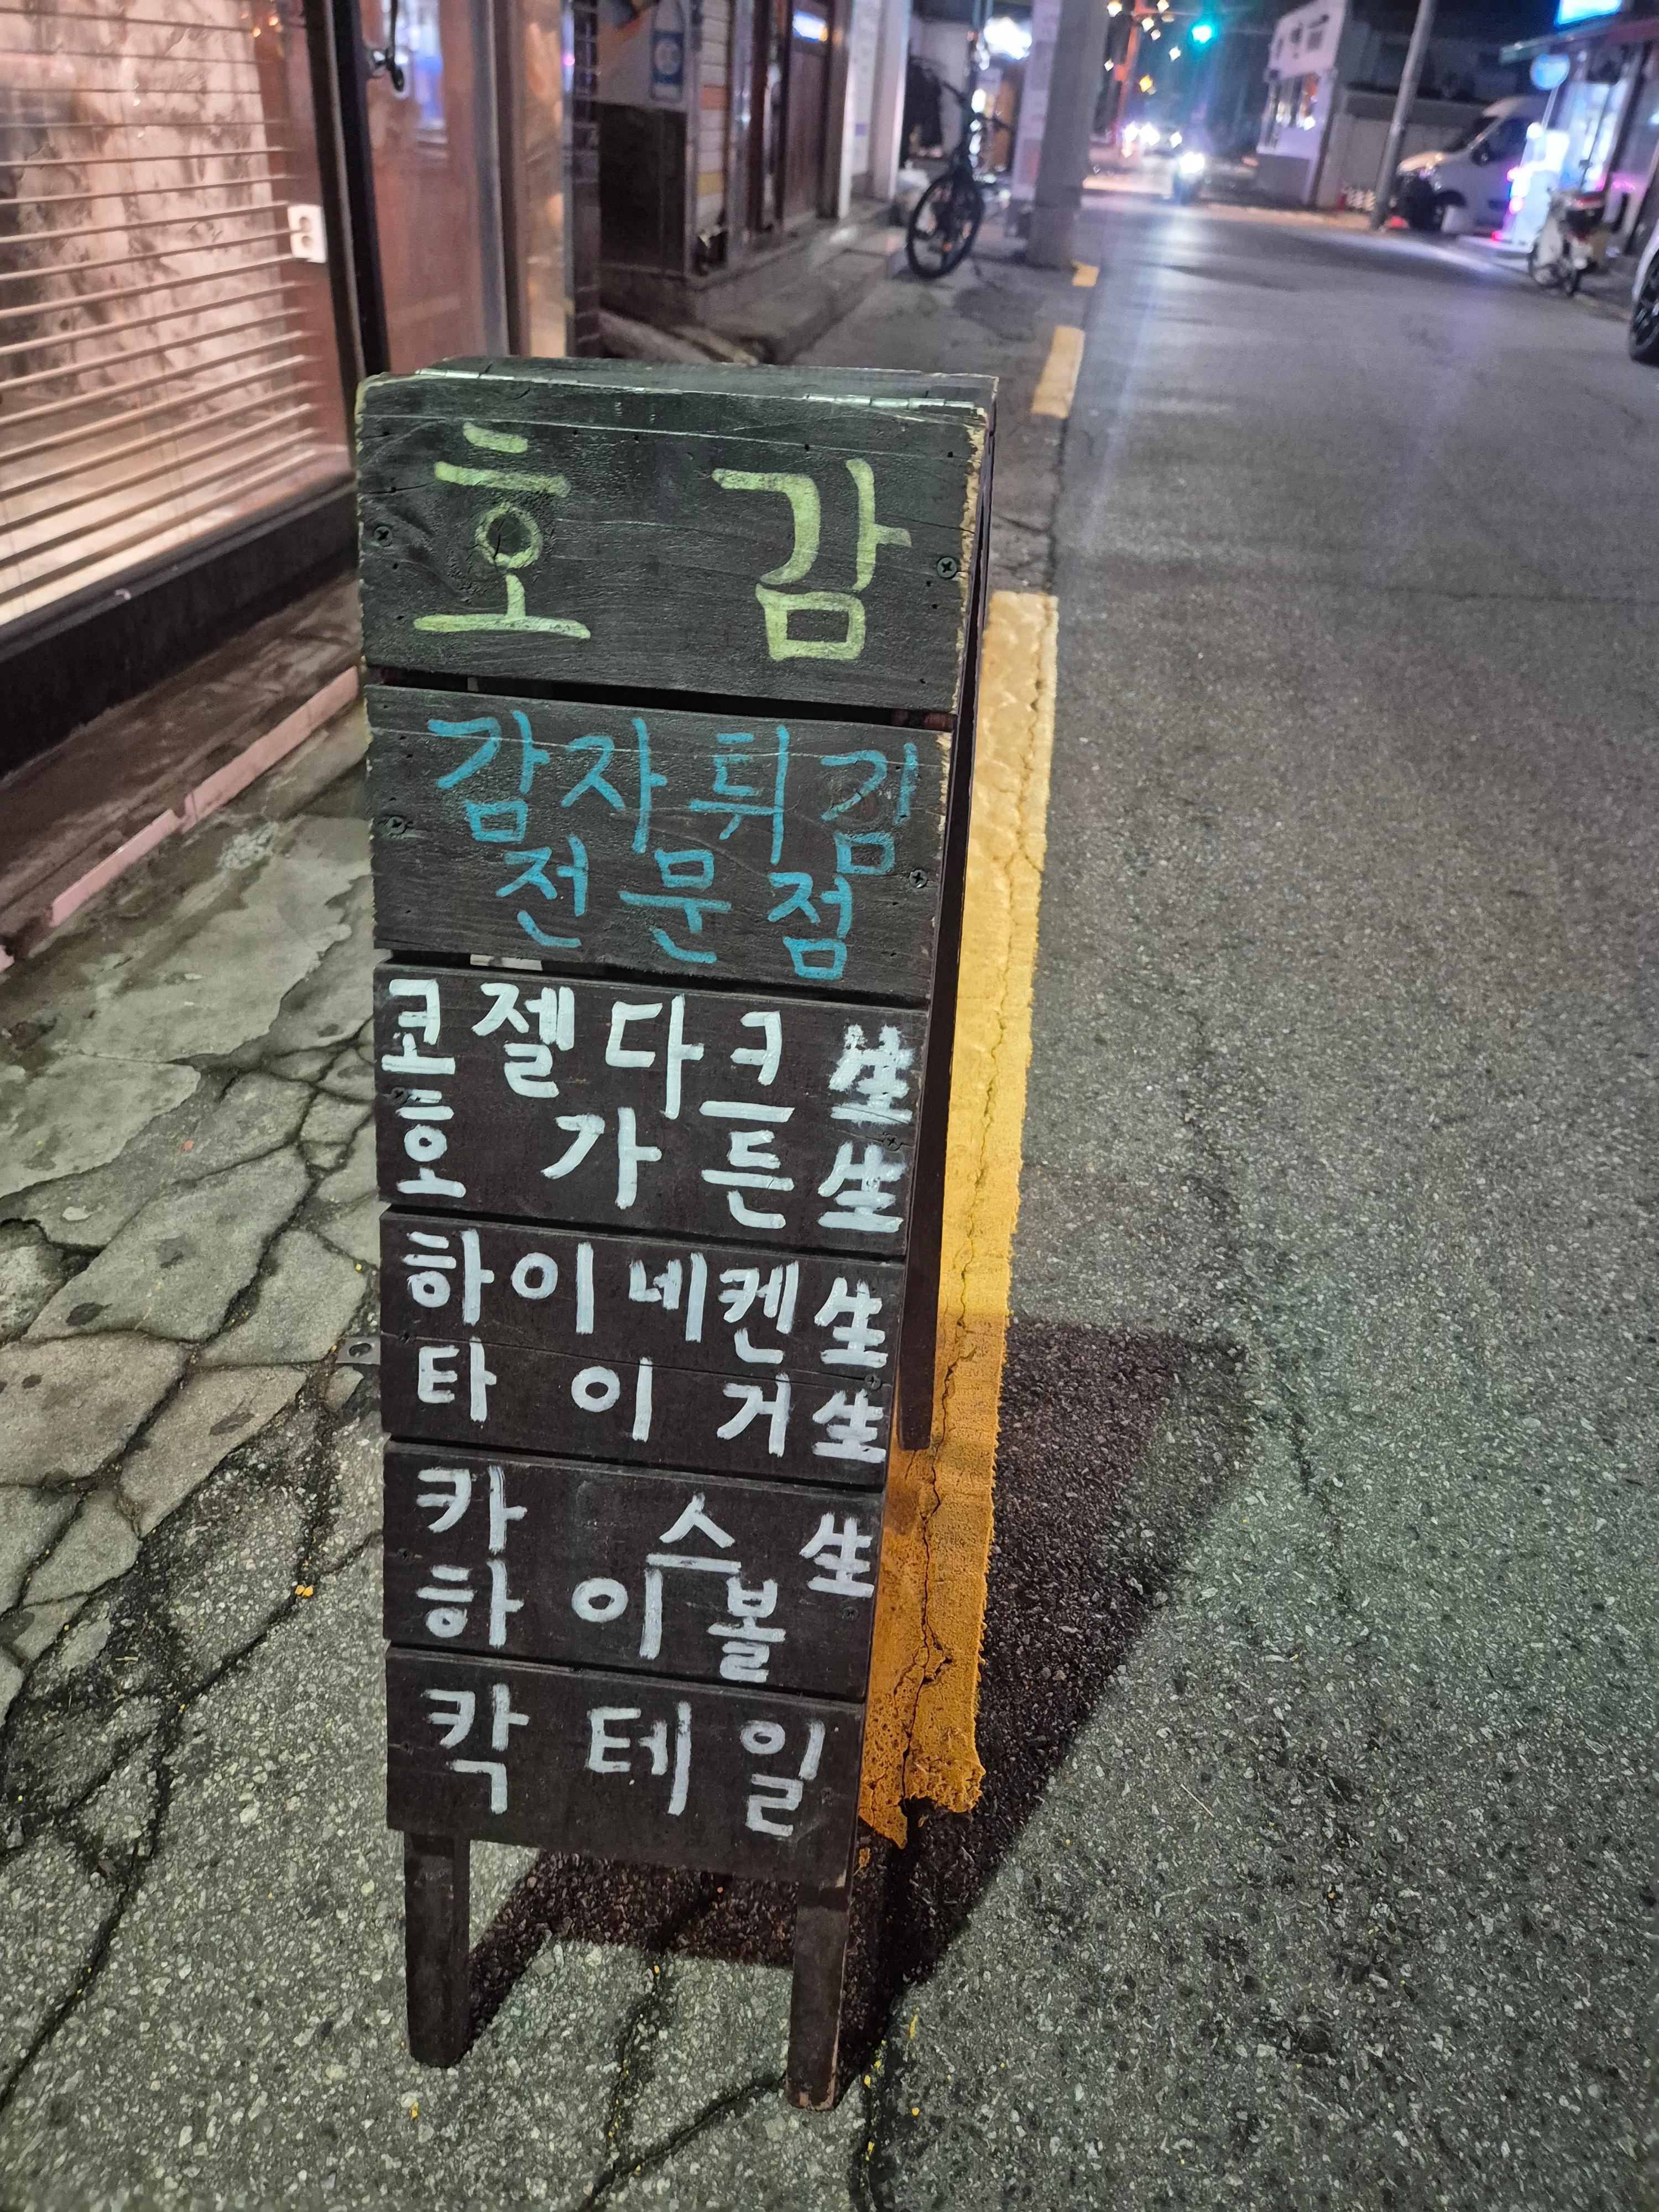 호 감
감자튀김
전문점
코젤다크 生
호가든 生
하이네켄 生
타이거 生
카스 生
하이볼
칵테일